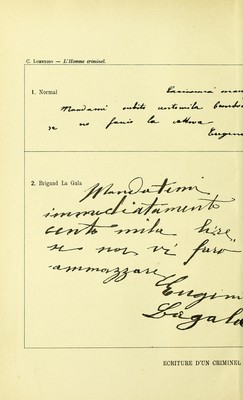 C. Lombroso — L'Homme criminel.
1. Normal
Mandami subito centomila
se no faccio la
Eugen
2. Brigand La Gala
Mandatemi
immediatamente
cento mila lire
se non vi faro
ammazzare
Eugim
Lagala
ECRITURE D'UN CRIMINEL